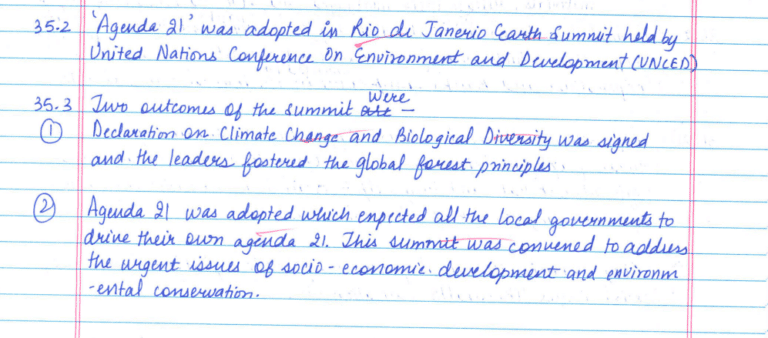 35.2 'Agenda 21' was adopted in Rio de Janerio Earth Summit held by
United Nations Conference On Environment and Development (UNCED)
35.3 Two outcomes of the summit were -
① Declaration on Climate Change and Biological Diversity was signed
and the leaders fostered the global forest principles.
② Agenda 21 was adopted which expected all the local governments to
drive their own agenda 21. This summit was convened to address
the urgent issues of socio-economic development and environm
-ental conservation.